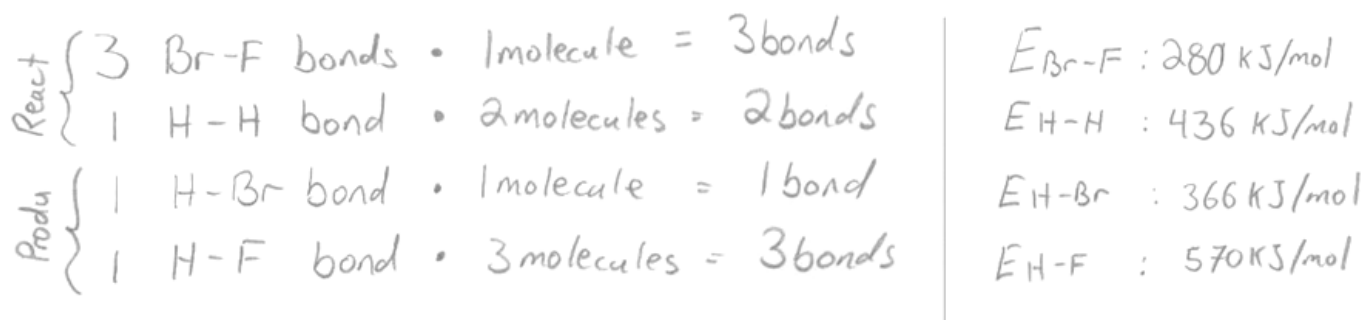 React { 3 Br-F bonds • 1 molecule = 3 bonds
1 H-H bond • 2 molecules = 2 bonds
Produ { 1 H-Br bond • 1 molecule = 1 bond
1 H-F bond • 3 molecules = 3 bonds
E Br-F : 280 KJ/mol
E H-H : 436 KJ/mol
E H-Br : 366 KJ/mol
E H-F : 570 KJ/mol